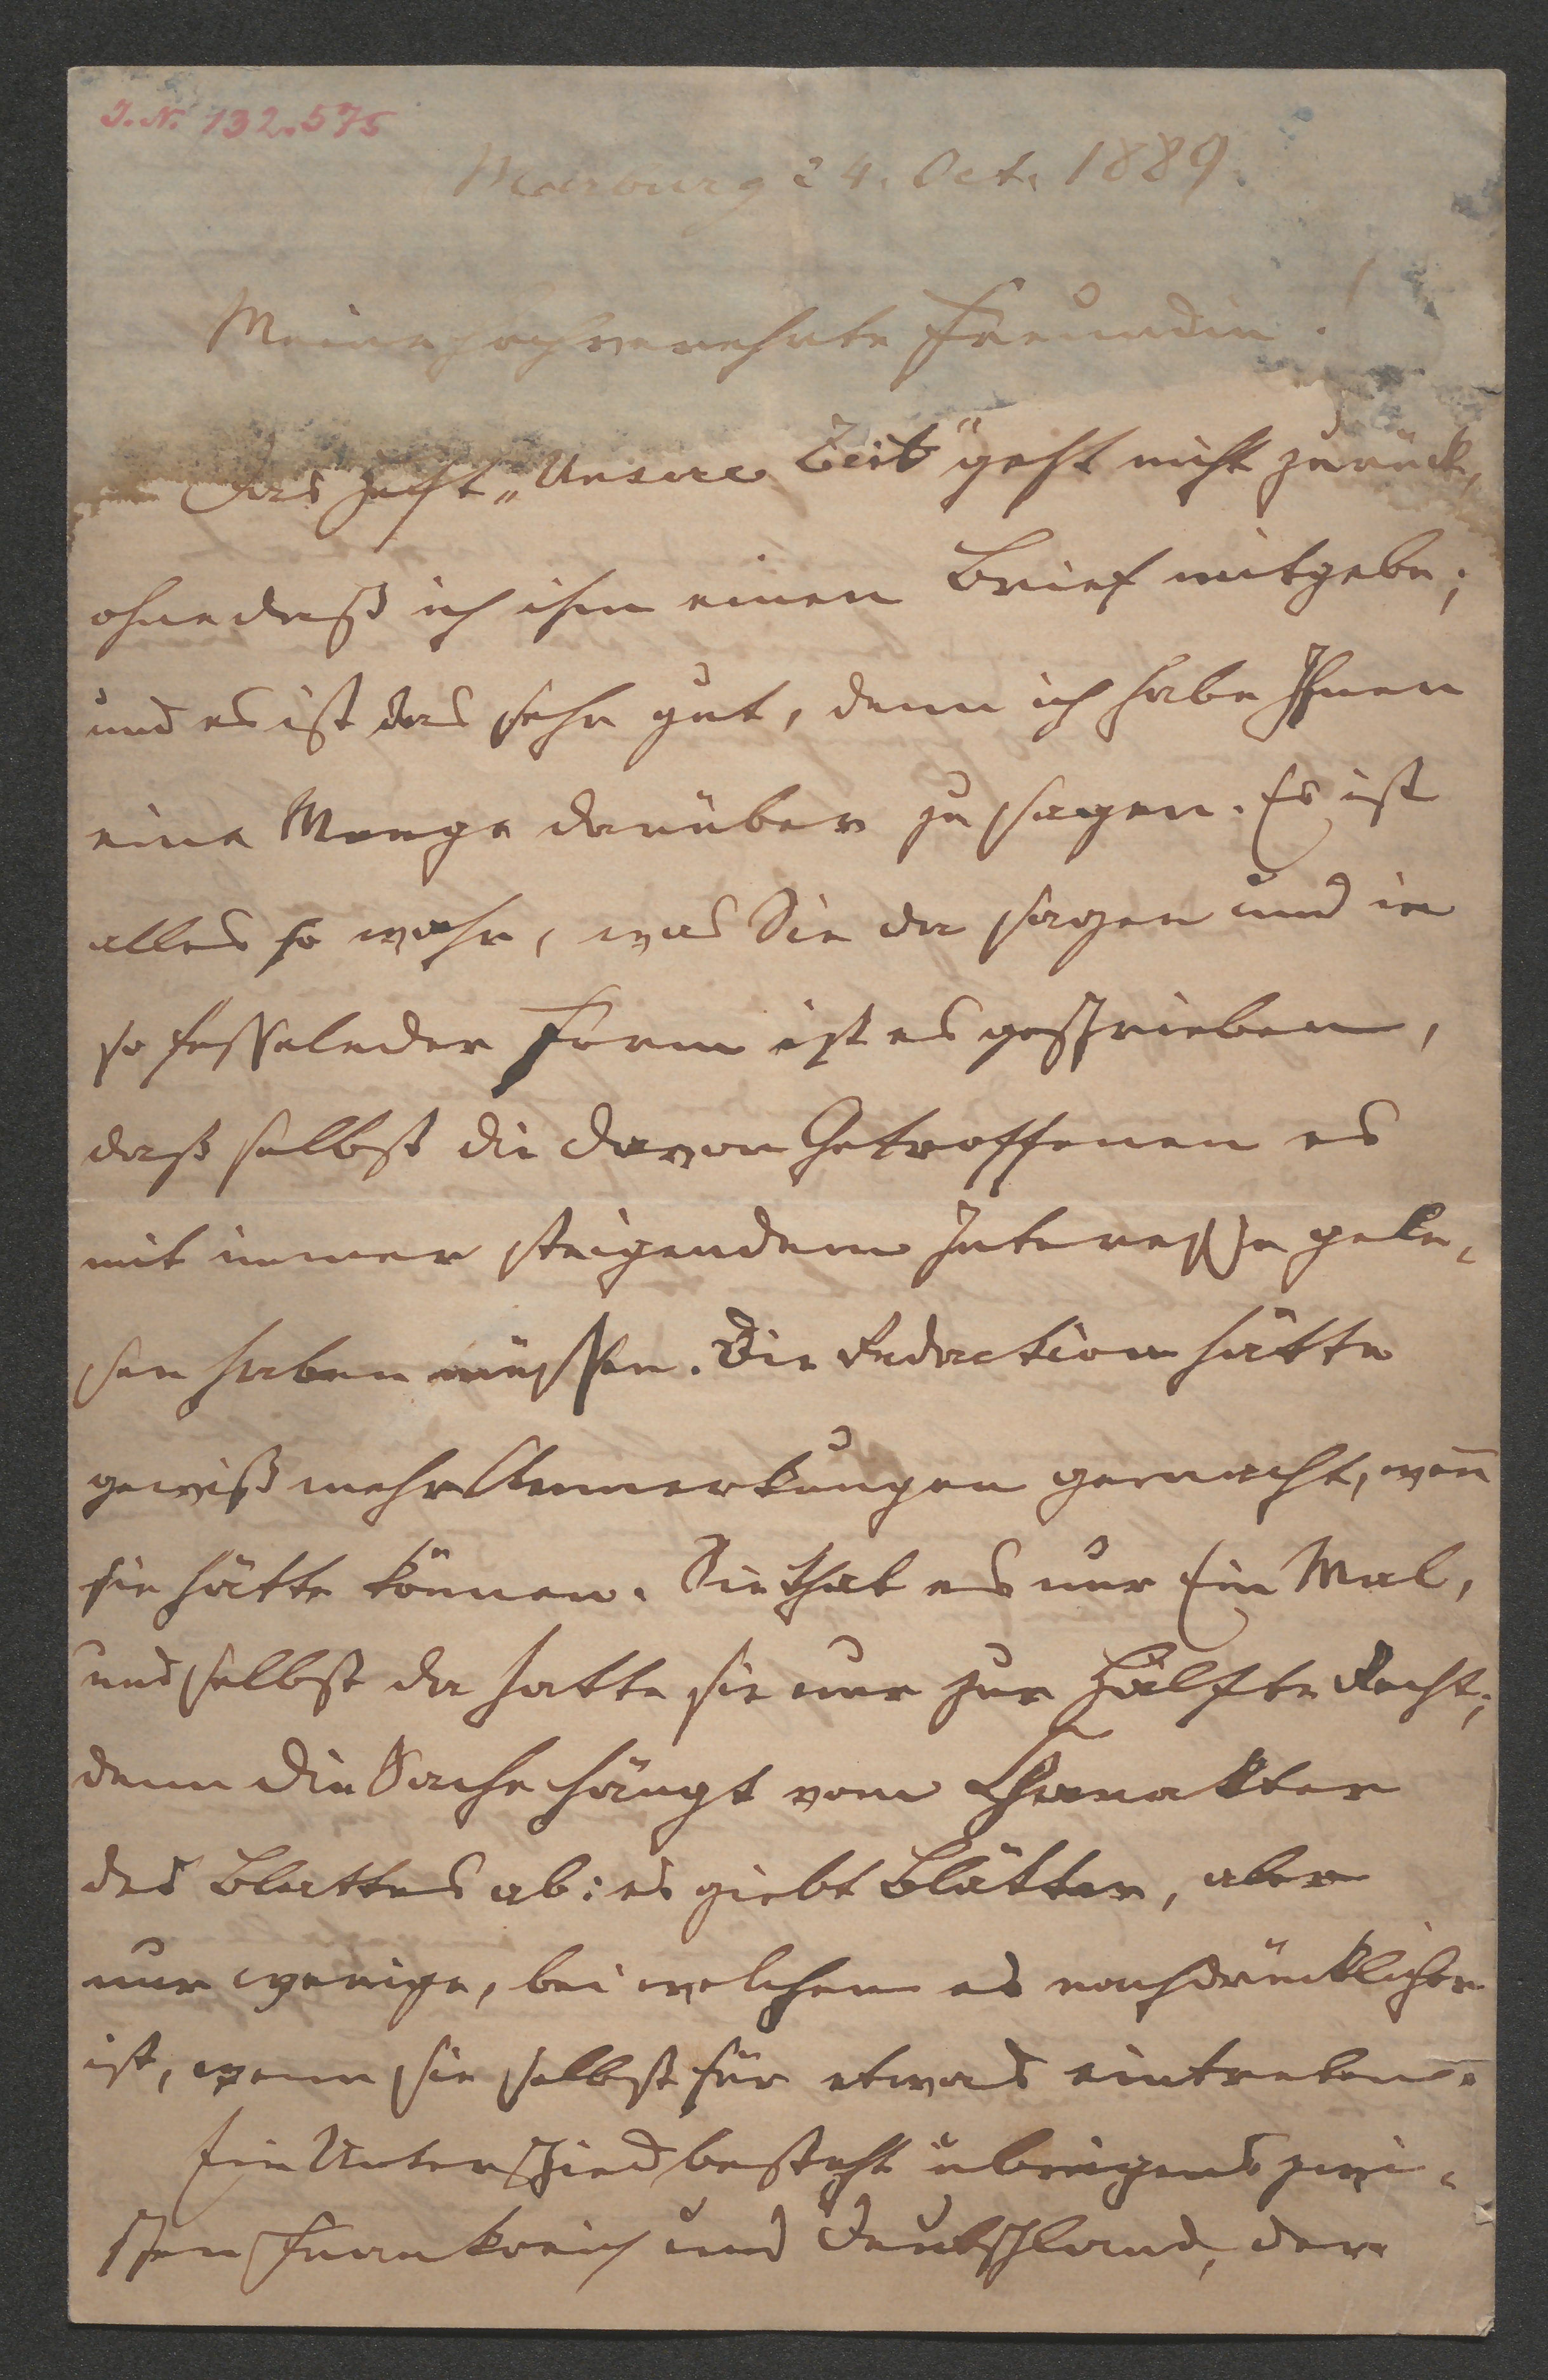 J. N. 132.575
Marburg 24. Oct. 1889.
Meine hochverehrte Freundin!
Das Heft „Unsere Zeit" geht nicht zurück,
ohne daß ich ihm einen Brief mitgebe;
und es ist das sehr gut, denn ich habe Ihnen
eine Menge darüber zu sagen. Es ist
alles so wahr, was Sie da sagen und in
so fesselnder Form ist es geschrieben,
daß selbst die davon Getroffenen es
mit immer steigendem Interesse gele-
sen haben müssen. Die Redaction hätte
gewiß mehr Anmerkungen gemacht, wen̄
sie hätte können. Sie that es nur Ein Mal,
und selbst da hatte sie nur zur Hälfte Recht;
denn die Sache hängt vom Charakter
des Blattes ab: es giebt Blätter, aber
nur wenige, bei welchen es nachdrücklicher
ist, wenn sie selbst für etwas eintreten.
Ein Unterschied besteht übrigens zwi-
schen Frankreich und Deutschland, der